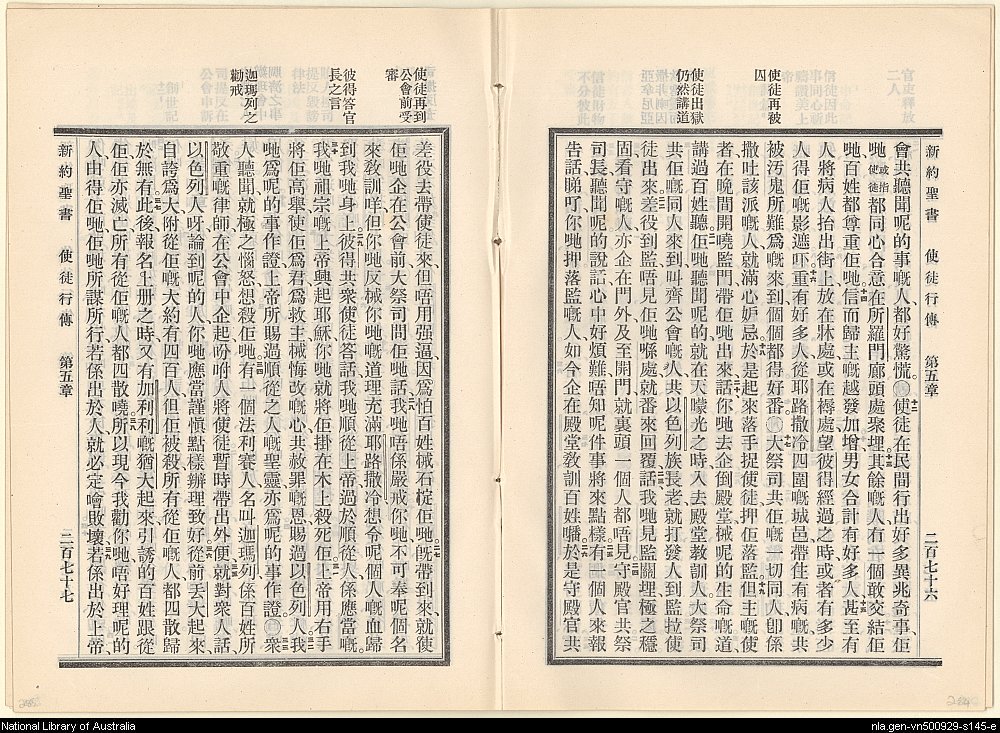 新約聖書 使徒行傳 第五章 二百七十六
會共聽聞呢的事嘅人、都好驚慌。十二使徒在民間行出好多異兆奇事、佢
哋或指使徒都同心合意在所羅門廊頭處聚埋。十三其餘嘅人、有一個敢交結佢
哋、百姓都尊重佢哋。十四信而歸主嘅越發加增、男女合計有好多人。十五甚至有
人將病人抬出街上、放在牀處或在褥處、望彼得經過之時、或者有多少
人得佢嘅影遮吓。十六重有好多人從耶路撒冷四圍嘅城邑、帶住有病嘅、共
被汚鬼所難爲嘅來到、個個都得好番。十七大祭司共佢嘅一切同人、卽係
撒吐該派嘅人、就滿心妒忌、十八於是起來、落手捉使徒、押佢落監。十九但主嘅使
者在晚間開曉監門、帶佢哋出來、話、二十你哋去企倒殿堂、㨢呢的生命嘅道、
講過百姓聽。二一佢哋聽聞呢的、就在天矇光之時、入去殿堂教訓人。大祭司
共佢嘅同人來到、叫齊公會嘅人、共以色列族長老、就打發人到監拉使
徒出來。二二差役到監、唔見佢哋喺處、就番來回覆話、二三我哋見監關埋極之穩
固、看守嘅人亦企在門外、及至開門、就裏頭一個人都唔見。二四守殿官共祭
司長聽聞呢的說話、心中好煩難、唔知呢件事將來點樣。二五有一個人來報
告話、睇吓、你哋押落監嘅人、如今企在殿堂教訓百姓嚹。二六於是守殿官共
官吏釋放二人
信徒因此事同心祈禱嚴美上帝
使徒再被囚
使徒出獄仍然講道
差役去、帶使徒來、但唔用强逼、因爲怕百姓㨢石掟佢哋。二七旣帶到來、就使
佢哋企在公會前、大祭司問佢哋話、二八我哋唔係嚴戒你哋、不可奉呢個名
來教訓咩、但你哋反㨢你哋嘅道理充滿耶路撒冷、想令呢個人嘅血歸
到我哋身上。二九彼得共衆使徒答話、我哋順從上帝過於順從人係應當嘅。
三十我哋祖宗嘅上帝興起耶穌、你哋就將佢掛在木上殺死佢。三一上帝用右手
將佢高舉、使佢爲君爲救主、㨢悔改嘅心共赦罪嘅恩賜過以色列人。三二我
哋爲呢的事作證、上帝所賜過順從之人嘅聖靈、亦爲呢的事作證。三三衆
人聽聞就極之惱怒、想殺佢哋。三四有一個法利賽人名叫迦瑪列、係百姓所
敬重嘅律師、在公會中企起、吩咐人將使徒暫時帶出外便、三五就對衆人話、
以色列人呀、論到呢的人、你哋應當謹愼點樣辦理致好。三六從前丟大起來、
自誇爲大、附從佢嘅大約有四百人、但佢被殺、所有從佢嘅人都四散歸
於無有。三七此後報名上册之時、又有加利利嘅猶大起來、引誘的百姓跟從
佢、佢亦滅亡、所有從佢嘅人都四散曉。三八所以現今我勸你哋唔好理呢的
人、由得佢哋、佢哋所謀所行、若係出於人、就必定噲敗壞、三九若係出於上帝、
新約聖書 使徒行傳 第五章 二百七十七
使徒再到公會前受審
彼得答官長之言
迦瑪列之勸戒
National Library of Australia
nla.gen-vn500929-s145-e